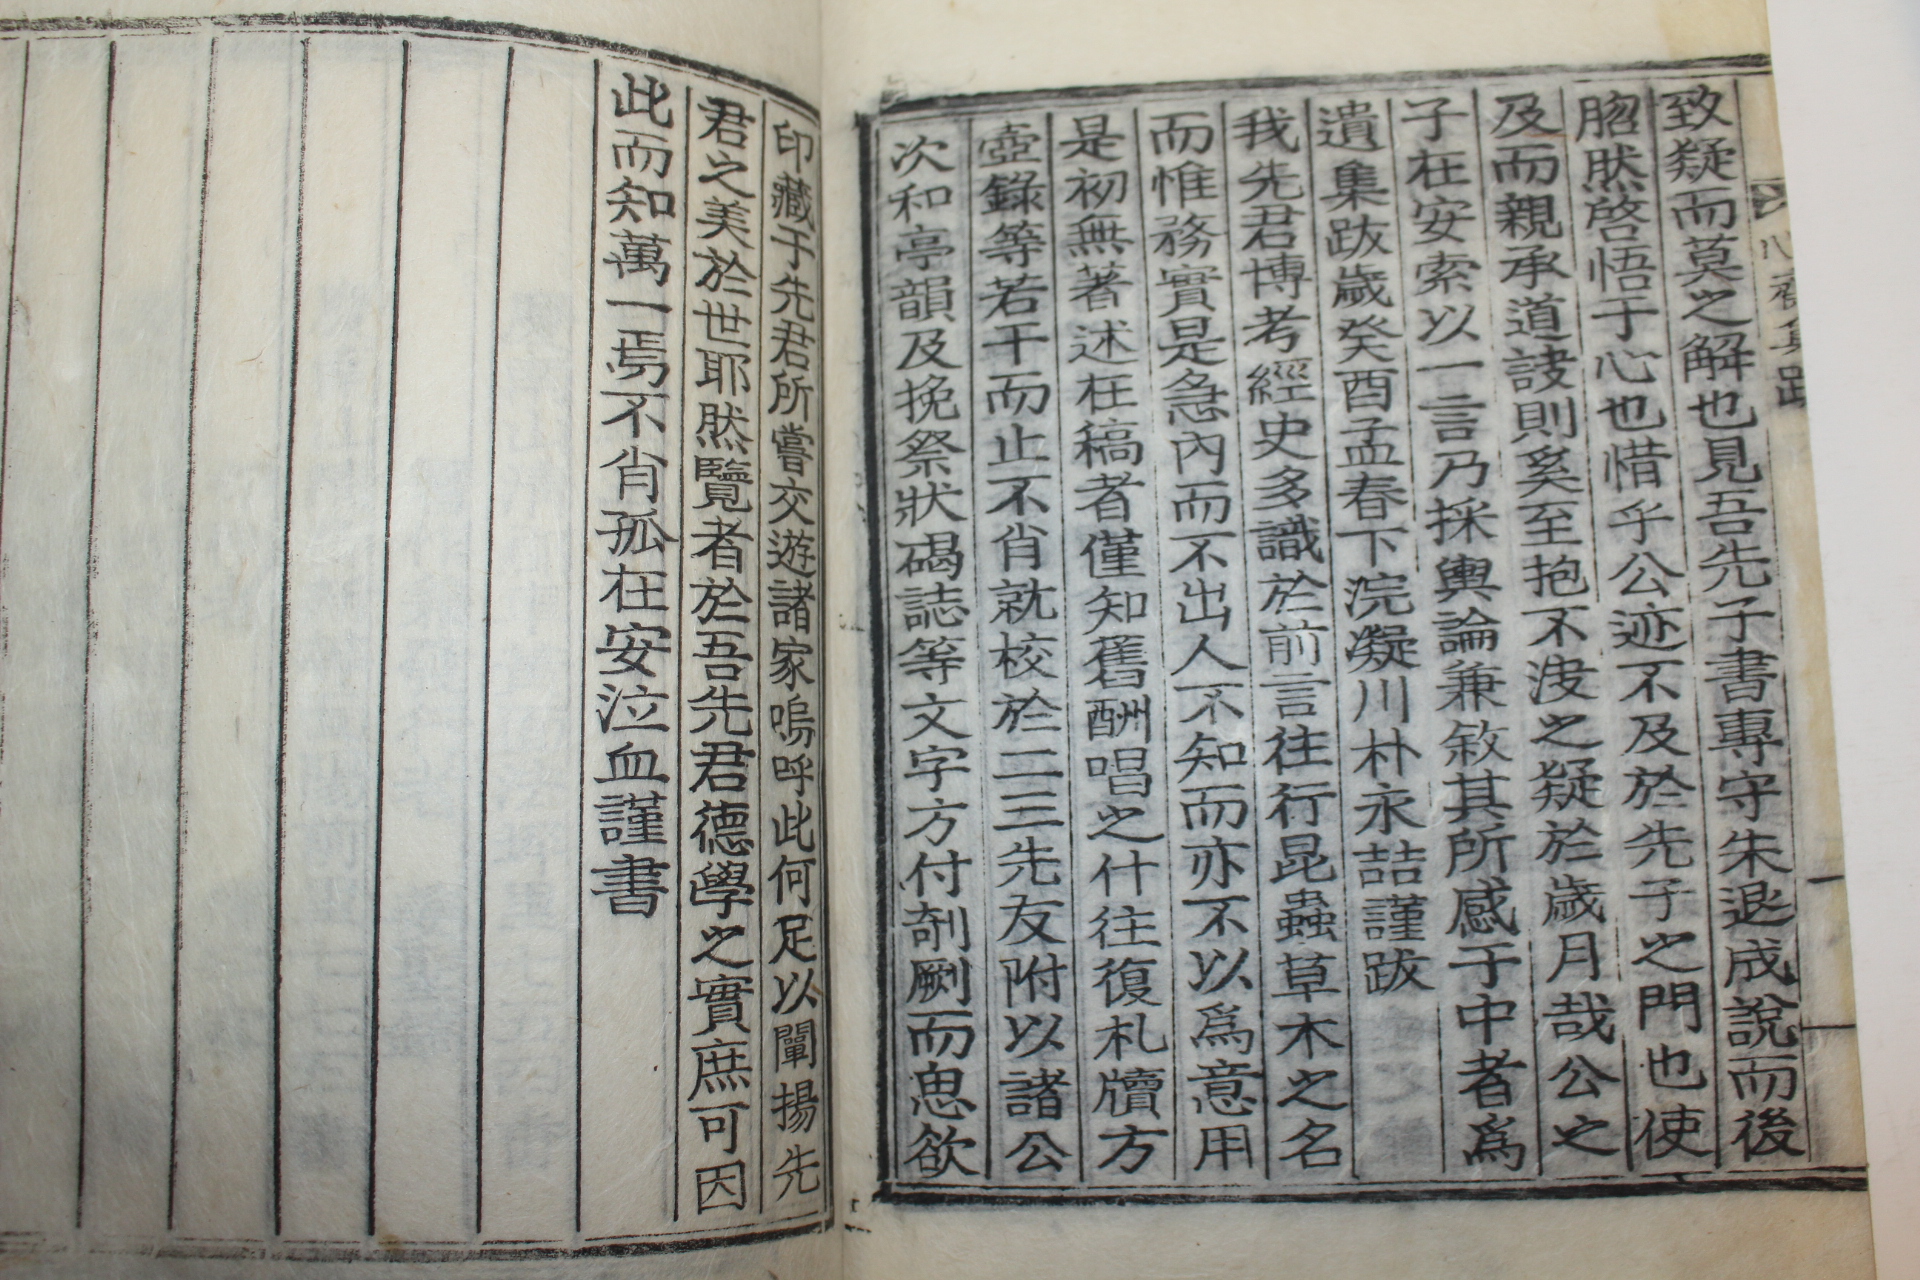 致疑而莫之解也見吾先子書專守朱退成說而後
脗然啓悟于心也惜乎公迹不及於先子之門也使
及而親承道訣則奚至抱不決之疑於歲月哉公之
子在安索以一言乃採輿論兼敘其所感于中者爲
遺集跋歲癸酉孟春下浣凝川朴永喆謹跋
我先君博考經史多識於前言往行昆蟲草木之名
而惟務實是急內而不出人不知而亦不以爲意用
是初無著述在稿者僅知舊酬唱之什往復札牘方
壺錄等若干而止不肖就校於二三先友附以諸公
次和亭韻及挽祭狀碣誌等文字方付剞劂而思欲
印藏于先君所嘗交遊諸家嗚呼此何足以闡揚先
君之美於世耶然覽者於吾先君德學之實庶可因
此而知萬一焉不肖孤在安泣血謹書